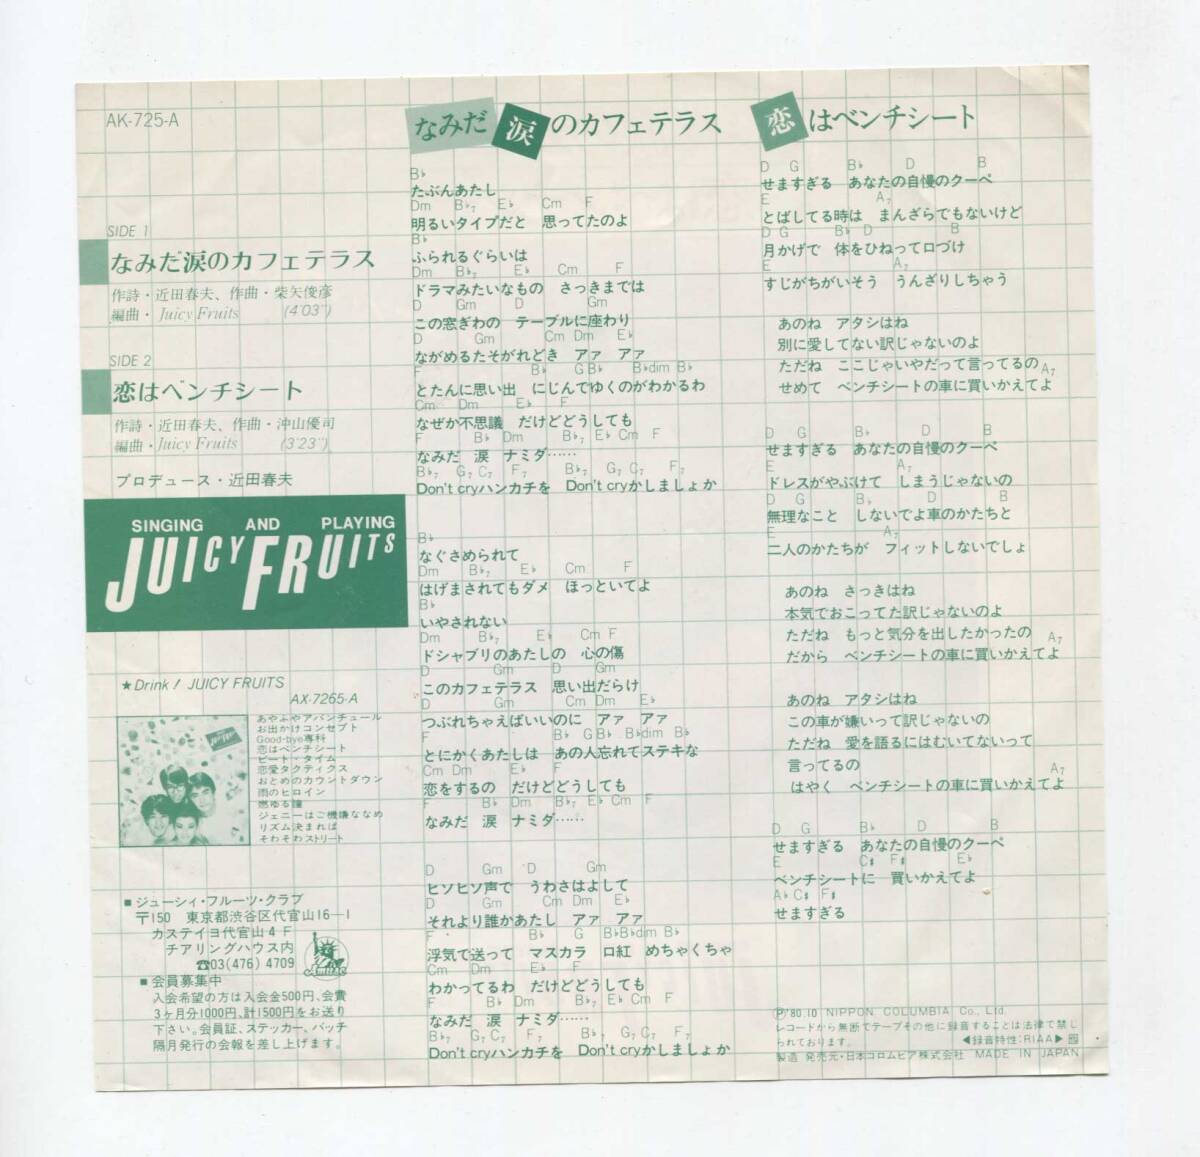 AK-725-A
SIDE 1
なみだ涙のカフェテラス
作詩・近田春夫、作曲・柴矢俊彦
編曲・Juicy Fruits (4'03")
SIDE 2
恋はベンチシート
作詩・近田春夫、作曲・沖山優司
編曲・Juicy Fruits (3'23")
プロデュース・近田春夫
SINGING AND PLAYING
JUICY FRUITS
★Drink! JUICY FRUITS
AX-7265-A
あやふやアバンチュール
お出かけコンセプト
Good-bye専科
恋はベンチシート
ビート・タイム
恋愛タクティクス
おとめのカウントダウン
雨のヒロイン
燃ゆる瞳
ジェニーはご機嫌ななめ
リズム決まれば
そわそわストリート
■ジューシィ・フルーツ・クラブ
〒150 東京都渋谷区代官山16−1
カステイヨ代官山4F
チアリングハウス内
☎03(476)4709
■会員募集中
入会希望の方は入会金500円、会費
3ヶ月分1000円、計1500円をお送り
下さい。会員証、ステッカー、バッチ
隔月発行の会報を差し上げます。
なみだ涙のカフェテラス
B♭
たぶんあたし
Dm B♭7 E♭ Cm F
明るいタイプだと 思ってたのよ
B♭
ふられるぐらいは
Dm B♭7 E♭ Cm F
ドラマみたいなもの さっきまでは
D Gm D Gm
この窓ぎわの テーブルに座わり
D Gm Cm Dm E♭
ながめるたそがれどき アァ アァ
F B♭ G B♭ B♭dim B♭
とたんに思い出 にじんでゆくのがわかるわ
Cm Dm E♭ F
なぜか不思議 だけどどうしても
F B♭ Dm B♭7 E♭ Cm F
なみだ 涙 ナミダ……
B♭7 G7 C7 F7 B♭7 G7 C7 F7
Don't cryハンカチを Don't cryかしましょか
B♭
なぐさめられて
Dm B♭7 E♭ Cm F
はげまされてもダメ ほっといてよ
B♭
いやされない
Dm B♭7 E♭ Cm F
ドシャブリのあたしの 心の傷
D Gm D Gm
このカフェテラス 思い出だらけ
D Gm Cm Dm E♭
つぶれちゃえばいいのに アァ アァ
F B♭ G B♭ B♭dim B♭
とにかくあたしは あの人忘れてステキな
Cm Dm E♭ F
恋をするの だけどどうしても
F B♭ Dm B♭7 E♭ Cm F
なみだ 涙 ナミダ……
D Gm D Gm
ヒソヒソ声で うわさはよして
D Gm Cm Dm E♭
それより誰かあたし アァ アァ
F B♭ G B♭ B♭dim B♭
浮気で送って マスカラ 口紅 めちゃくちゃ
Cm Dm E♭ F
わかってるわ だけどどうしても
F B♭ Dm B♭7 E♭ Cm F
なみだ 涙 ナミダ……
B♭7 G7 C7 F7 B♭7 G7 C7 F7
Don't cryハンカチを Don't cryかしましょか
恋はベンチシート
D G B♭ D B
せますぎる あなたの自慢のクーペ
E A7
とばしてる時は まんざらでもないけど
D G B♭ D B
月かげで 体をひねって口づけ
E A7
すじがちがいそう うんざりしちゃう
あのね アタシはね
別に愛してない訳じゃないのよ
ただね ここじゃいやだって言ってるの
A7
せめて ベンチシートの車に買いかえてよ
D G B♭ D B
せますぎる あなたの自慢のクーペ
E A7
ドレスがやぶけて しまうじゃないの
D G B♭ D B
無理なこと しないでよ車のかたちと
E A7
二人のかたちが フィットしないでしょ
あのね さっきはね
本気でおこってた訳じゃないのよ
ただね もっと気分を出したかったの
A7
だから ベンチシートの車に買いかえてよ
あのね アタシはね
この車が嫌いって訳じゃないの
ただね 愛を語るにはむいてないって
言ってるの
A7
はやく ベンチシートの車に買いかえてよ
D G B♭ D B
せますぎる あなたの自慢のクーペ
E C♯ F♯ E♭
ベンチシートに 買いかえてよ
A♭ C♯ F♯
せますぎる
Ⓟ'80.10 NIPPON COLUMBIA Co., Ltd.
レコードから無断でテープその他に録音することは法律で禁じ
られております。 ◀録音特性:RIAA▶
製造 発売元・日本コロムビア株式会社 MADE IN JAPAN